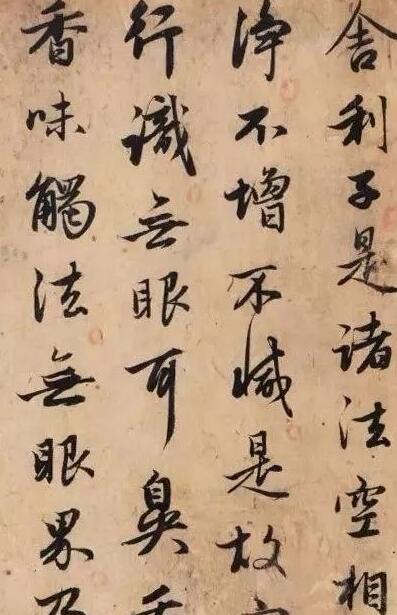 舍利子是诸法空相
净不增不减是故
行識无眼耳鼻舌
香味觸法無眼界乃